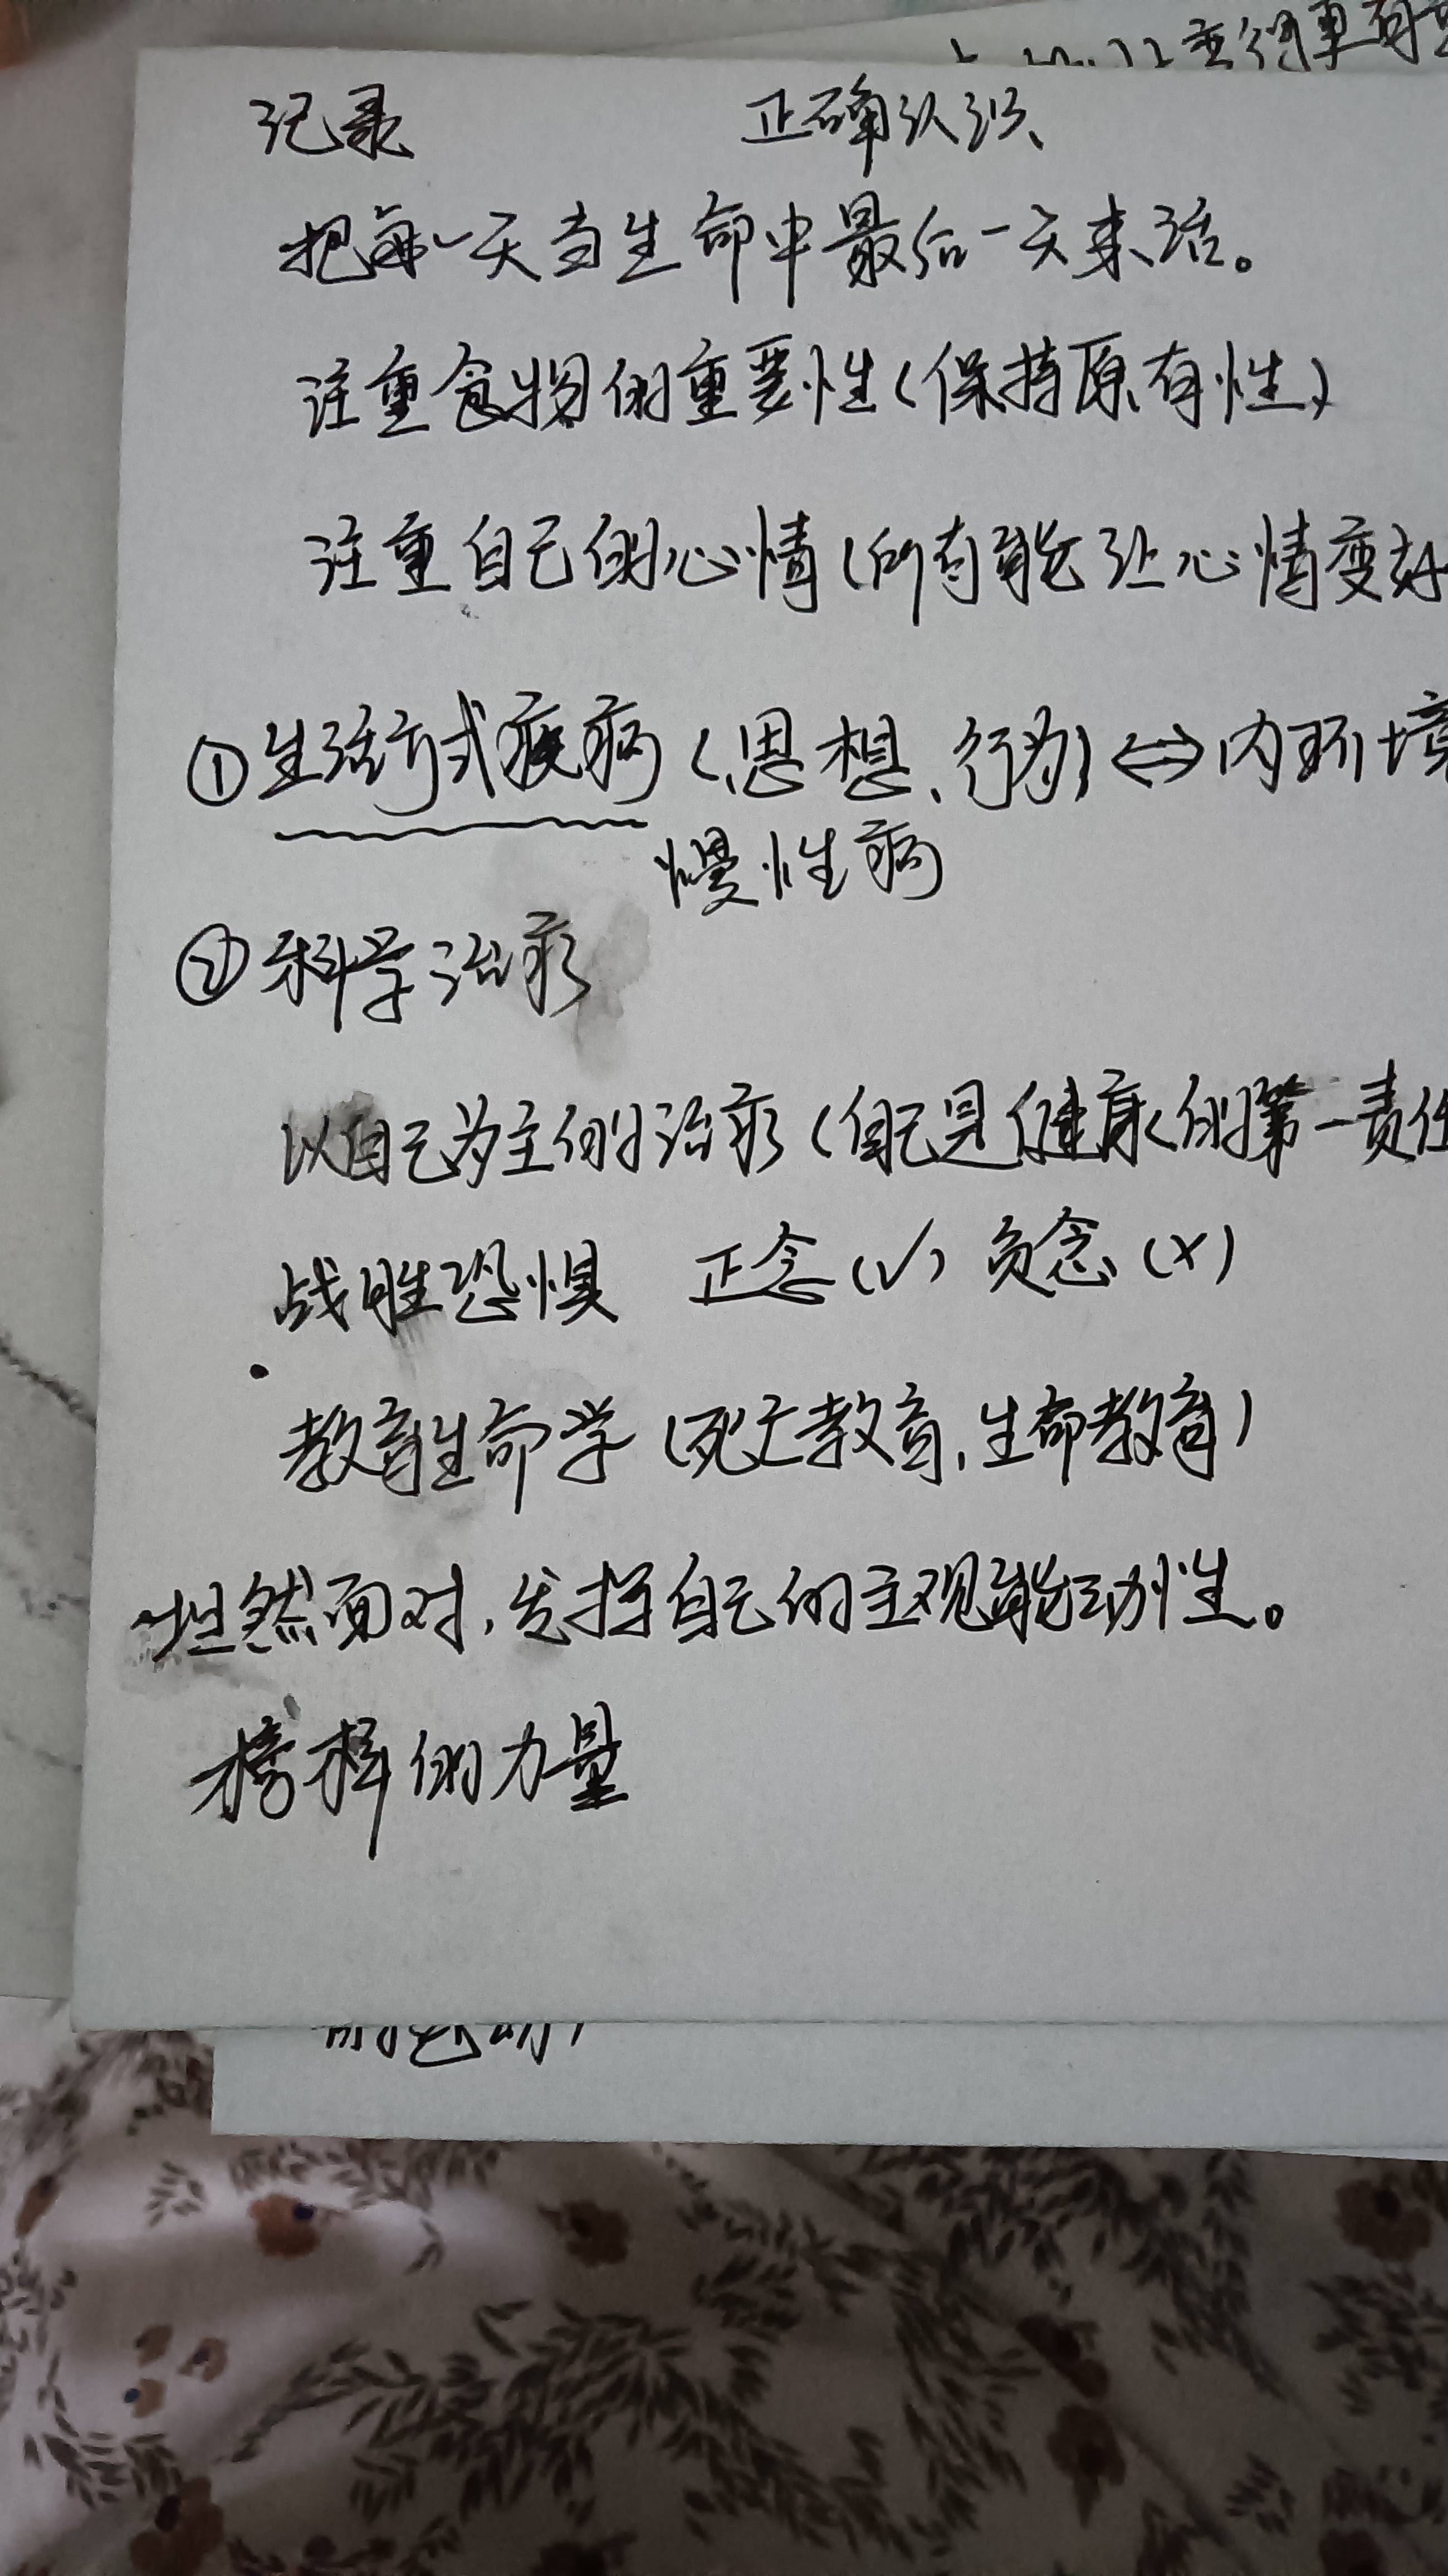 重得更有
记录 正确认识
把每一天当生命中最后一天来活。
注重食物的重要性(保持原有性)
注重自己的心情(所有能让心情变好
①生活方式疾病(思想、行为)⇔内环境
慢性病
②科学治疗
以自己为主的治疗(自己是健康的第一责任
战胜恐惧 正念(√)负念(×)
·
教育生命学(死亡教育,生命教育)
坦然面对,发挥自己的主观能动性。
榜样的力量